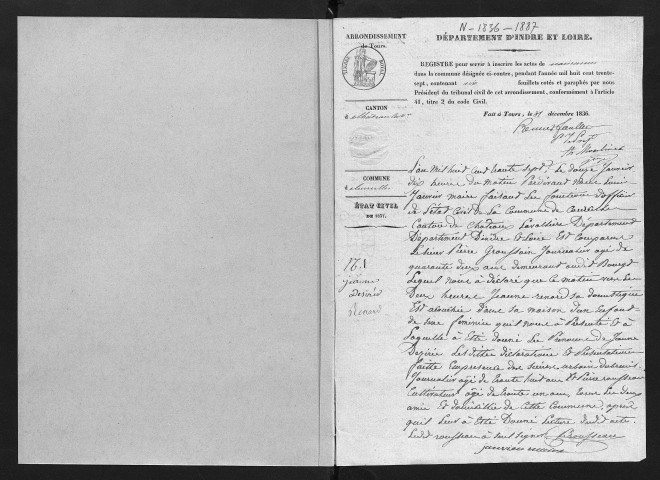 N - 1836 - 1887
ARRONDISSEMENT
de Tours.
DÉPARTEMENT D'INDRE ET LOIRE.
REGISTRE pour servir à inscrire les actes de naissances
dans la commune désignée ci-contre, pendant l'année mil huit cent trente-
sept, contenant six feuillets cotés et paraphés par nous
Président du tribunal civil de cet arrondissement, conformément à l'article
41, titre 2 du code Civil.
Fait à Tours, le décembre 1836.
CANTON
COMMUNE
ÉTAT CIVIL
DE 1837.
L'an mil huit cent trente sept le douze Janvier
dix heures du matin Pardevant nous Louis
Janvier maire faisant les fonctions d'officier
de l'état Civil de la Commune de
Canton de Chateau Lavalliere Département
Département D'indre et Loire Est Comparu
Pierre Groussin Journalier agé de
quarante deux ans demeurant audit Bourg
Lequel nous à déclaré que le matin vers les
Deux heures Jeanne renard sa domestique
Est alouchée dans sa maison d'un Enfant
de sexe féminin qu'il nous à Présenté Et à
Laquelle à Eté donné les Prénoms de Jeanne
Desirée Les dittes déclaration Et Présentation
faitte En presence des sieurs urbain
Journalier agé de trente huit ans Et Pierre rousseau
Cultivateur agé de trente un ans tous les deux
amis Et domiciliés de Cette Commune, après
qu'il Leur à Eté Donné Lecture dudit acte.
Ledit rousseau à seul signé Rousseau
janvier maire
N.1
Jeanne
Desirée
Renard